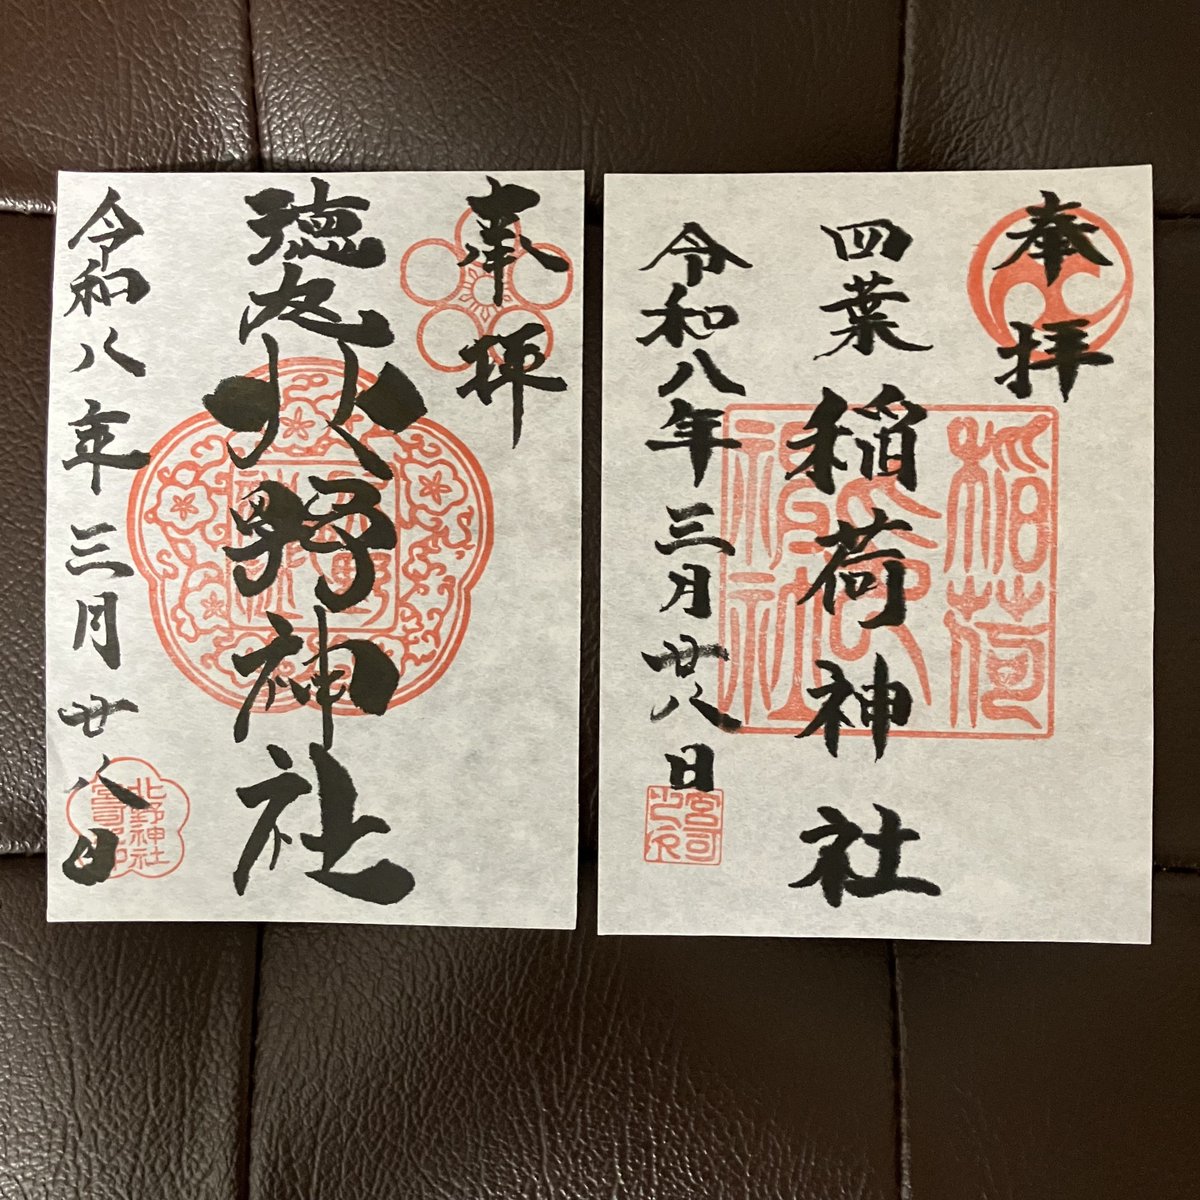 奉拝
四葉稲荷神社
令和八年三月廿八日
稲荷
神社
宮司
奉拝
徳丸北野神社
令和八年三月廿八日
北野神社